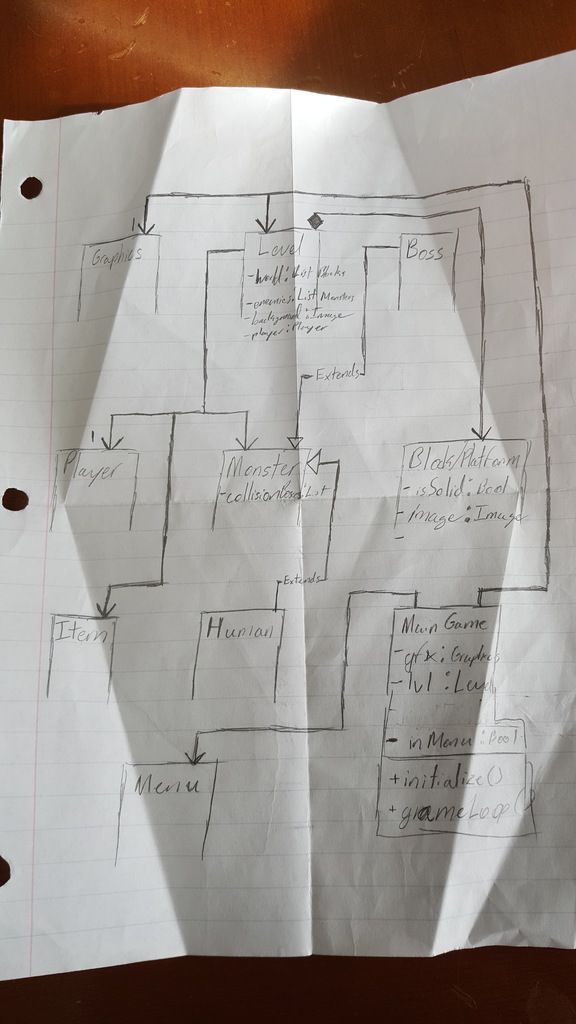 1
Graphics
Level
- world: List Blocks
- enemies: List Monsters
- background: Image
- player: Player
Boss
Extends
1
Player
Monster
- collisionBoxes: List
Block/Platform
- isSolid: Bool
- Image: Image
-
Extends
Item
Human
Main Game
- gfx: Graphics
- lvl: Level
- inMenu: Bool
+ initialize()
+ gameLoop()
Menu